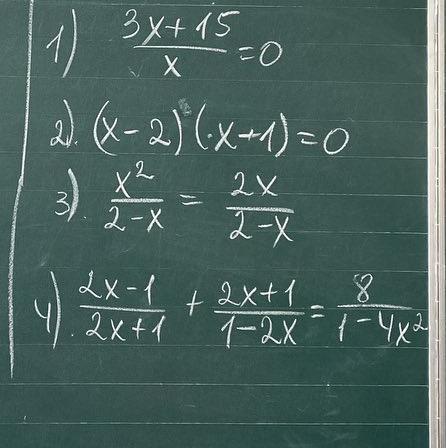 1) (3x+15)/x = 0
2). (x-2)(x+1)=0
3). x²/(2-x) = 2x/(2-x)
4). (2x-1)/(2x+1) + (2x+1)/(1-2x) = 8/(1-4x²)